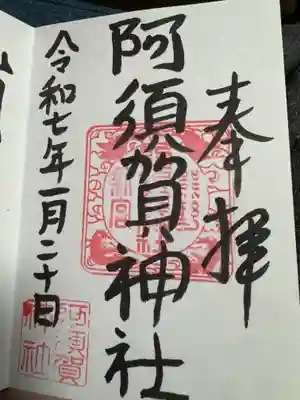 奉拝
阿須賀神社
令和七年一月二十日
阿須賀
神社